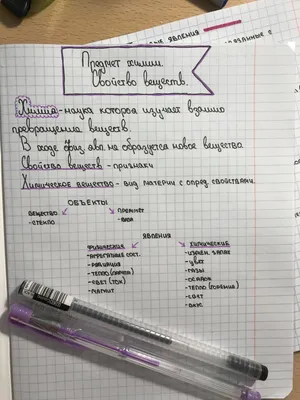 явления
Предмет химии.
Свойство веществ.
Химия - наука которая изучает взаимо
превращение веществ.
В ходе физ. явл. не образуется новое вещество
Свойство веществ - признаки
Химическое вещество - вид материи с опред. свойствами
ОБЪЕКТЫ
ВЕЩЕСТВО ПРЕДМЕТ
-СТЕКЛО -ВАЗА
ЯВЛЕНИЯ
ФИЗИЧЕСКИЕ ХИМИЧЕСКИЕ
-АГРЕГАТНЫЕ СОСТ. -ИЗМЕН. ЗАПАХ
-РАДИАЦИЯ -ЦВЕТ
-ТЕПЛО -ГАЗЫ
-СВЕТ (ТОК) -ОСАДОК
-МАГНИТ -ТЕПЛО (ГОРЕНИЕ)
-СВЕТ
-ВКУС